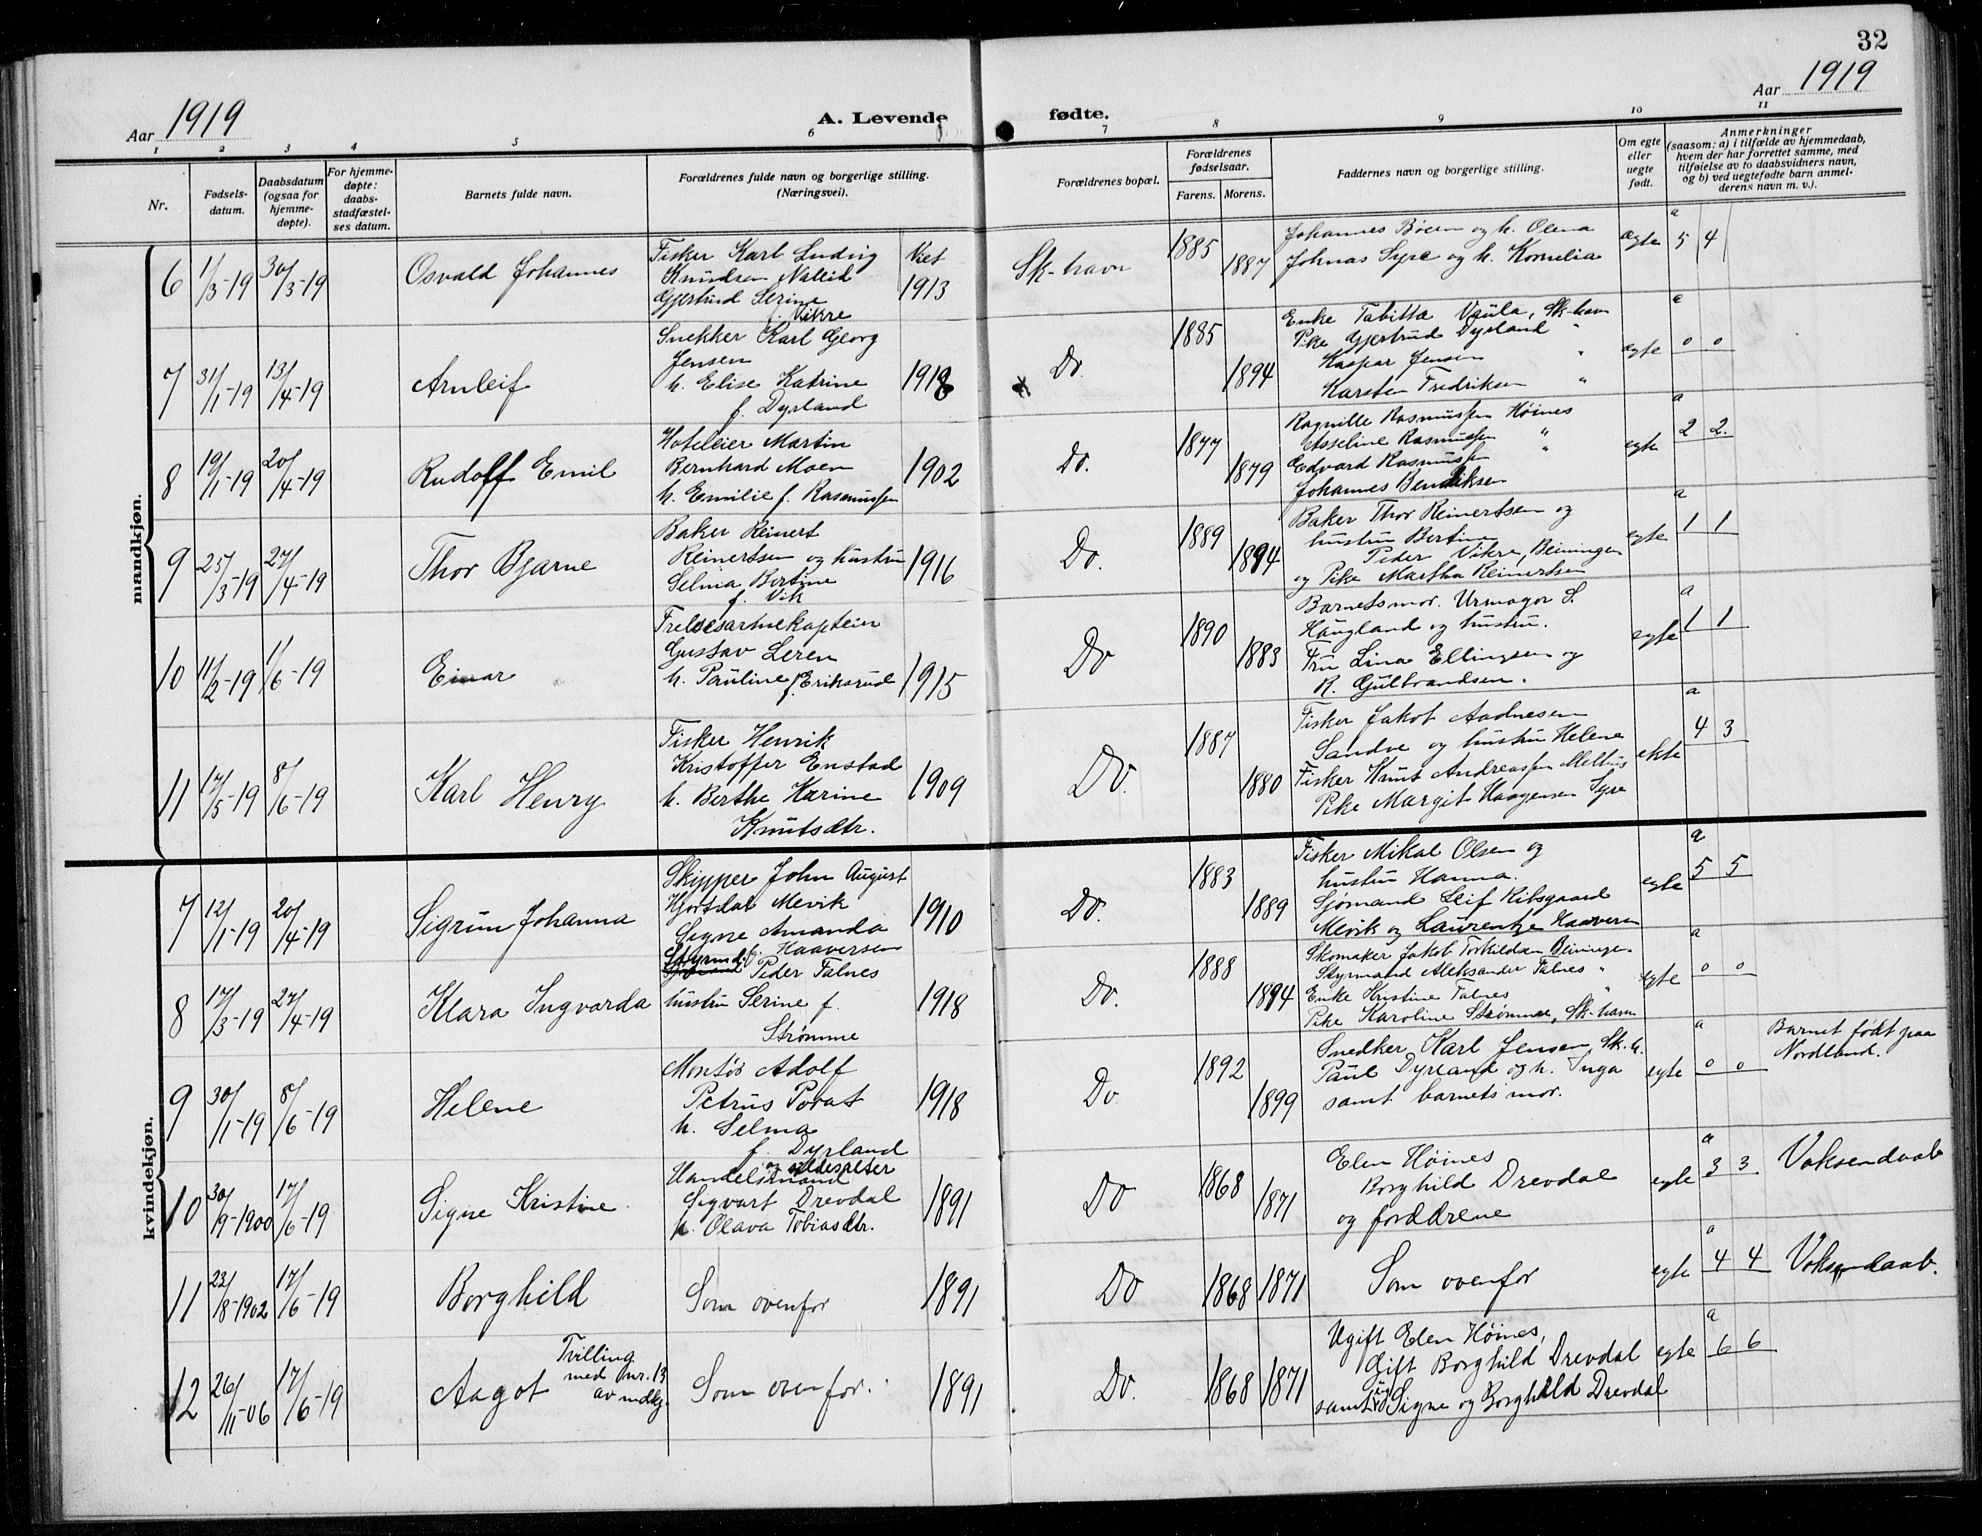 32
Aar 1919
A. Levende fødte.
Aar 1919
1 2 3 4 5 6 7 8 9 10 11
Nr.
Fødsels-
datum.
Daabsdatum
(ogsaa for
hjemme-
døpte).
For hjemme-
døpte:
daabs-
stadfæstel-
ses datum.
Barnets fulde navn.
Forældrenes fulde navn og borgerlige stilling.
(Næringsvei).
Forældrenes bopæl.
Forældrenes
fødselsaar.
Farens. Morens.
Faddernes navn og borgerlige stilling.
Om egte
eller
uegte
født.
Anmerkninger
(saasom: a) i tilfælde av hjemmedaab,
hvem der har forrettet samme, med
tilføielse av to daabsvidners navn,
og b) ved uegtefødte barn anmel-
derens navn m. v.).
mandkjøn.
6 1/3-19 30/3-19 Osvald Johannes
Fisker Karl Ludvig
Knudsen
Gjertrud Serine
f. Vikre
Viet
1913
Sk-havn
1885
1887
Johannes Bøen og h. Olena
Johnas Syre og h. Kornelia
egte
a
5 4
7 31/1-19 13/4-19 Arnleif
Snekker Karl Georg
Jensen
h. Elise Katrine
f. Dyrland
1918
Do.
1885
1894
Enke Tabitta Vaula, Sk-havn
Pike Gjertrud Dyrland "
Kaspar Jensen "
Karsten Fredriksen "
egte
a
0 0
8 19/1-19 20/4-19 Rudolf Emil
Hoteleier Martin
Bernhard Moen
h. Emilie f. Rasmussen
1902
Do.
1877
1879
Ragnille Rasmussen Høines
Asseline Rasmussen "
Edvard Rasmussen "
Johannes Bendiksen
egte
a
2 2.
9 25/3-19 27/4-19 Thor Bjarne
Baker Reinert
Reinertsen og hustru
Selma Bertine
f. Vik
1916
Do.
1889
1894
Baker Thor Reinertsen og
hustru Bertine
Peder Vikre, Beiningen
og Pike Martha Reinertsen
egte
a
1 1
10 11/2-19 1/6-19 Einar
Frelsesarmekaptein
Gustav Leren
h. Pauline f. Eriksrud
1915
Do
1890
1883
Barnets mor. Urmager S.
Haugland og hustru.
Fru Lina Ellingsen og
R. Gulbrandsen.
egte
a
1 1
11 17/5-19 8/6-19 Karl Henry
Fisker Henrik
Kristoffer Enstad
h. Berthe Karine
Knutsdtr.
1909
Do.
1887
1880
Fisker Jakob Aadnesen
Sandve og hustru Helene
Fisker Knut Andreassen Melhus
Pike Margit Haagensen Syre
ekte
a
4 3
kvindekjøn.
7 12/1-19 20/4-19 Sigrun Johanna
Skipper John August
Hjortdal Mevik
Signe Amanda
f. Haaversen
1910
Do.
1883
1889
Fisker Mikal Olsen og
hustru Hanna.
Sjømand Leif Kibsgaard
Mevik og Laurentze Haaversen
egte
a
5 5
8 17/3-19 27/4-19 Klara Ingvarda
Styrmd. Peder Falnes
hustru Serine f.
Strømme
1918
Do.
1888
1894
Skomaker Jakob Torkildsen Beininge-
Styrmand Aleksander Falnes "
Enke Kristine Falnes "
Pike Karoline Strømme, Sk-havn
egte
a
0 0
9 30/1-19 8/6-19 Helene
Montør Adolf
Petrus Porat
h. Selma
f. Dyrland
1918
Do
1892
1899
Snedker Karl Jensen, Sk. h.
Paul Dyrland og h. Inga
samt barnets mor.
egte
a
0 0
Barnet født paa
Nordland.
10 30/9-1900 17/6-19 Signe Kristine
Handelsmand og sildesalter
Sigvart Drevdal
h. Olava Tobiasdtr.
1891
Do
1868
1871
Elen Høines
Borghild Drevdal
og forældrene
egte
a
3 3
Voksendaab
11 23/8-1902 17/6-19 Borghild
Som ovenfor
1891
Do
1868 1871
Som ovenfor
egte
a
4 4
Voksendaab.
12 26/11-06 17/6-19 Aagot
Tvilling
med nr. 13
av mdkj.
Som ovenfor.
1891
Do.
1868 1871
Ugift Elen Høines,
Gift Borghild Drevdal
samt Signe og Borghild Drevdal
egte
a
6 6